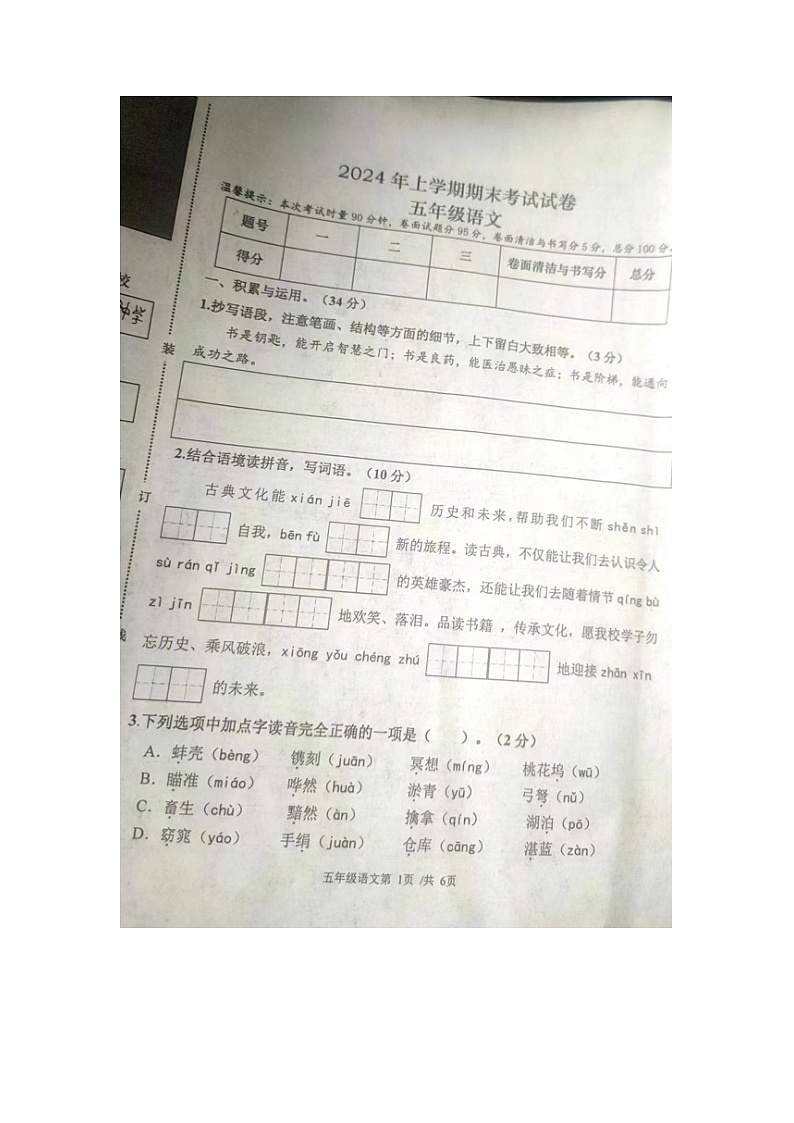 2024 年上学期期末考试试卷
五年级语文
温馨提示：本次考试时量 90 分钟，卷面试题分 95 分，卷面清洁与书写分 5 分，总分 100 分。
题号 一 二 三 卷面清洁与书写分 总分
得分
一、积累与运用。（34 分）
1.抄写语段，注意笔画、结构等方面的细节，上下留白大致相等。（3 分）
书是钥匙，能开启智慧之门；书是良药，能医治愚昧之症；书是阶梯，能通向
成功之路。
2.结合语境读拼音，写词语。（10 分）
古典文化能 xián jiē 历史和未来，帮助我们不断 shěn shì
自我，bēn fù 新的旅程。读古典，不仅能让我们去认识令人
sù rán qǐ jìng 的英雄豪杰，还能让我们去随着情节 qíng bù
zì jīn 地欢笑、落泪。品读书籍 ，传承文化，愿我校学子勿
忘历史、乘风破浪，xiōng yǒu chéng zhú 地迎接 zhǎn xīn
的未来。
3.下列选项中加点字读音完全正确的一项是（ ）。（2 分）
A．蚌壳（bèng） 镌刻（juān） 冥想（míng） 桃花坞（wū）
B．瞄准（miáo） 哗然（huà） 淤青（yū） 弓弩（nǔ）
C．畜生（chù） 黯然（àn） 擒拿（qín） 湖泊（pō）
D．窈窕（yáo） 手绢（juàn） 仓库（cāng） 湛蓝（zàn）
五年级语文第 1页 /共 6页
校
装
订